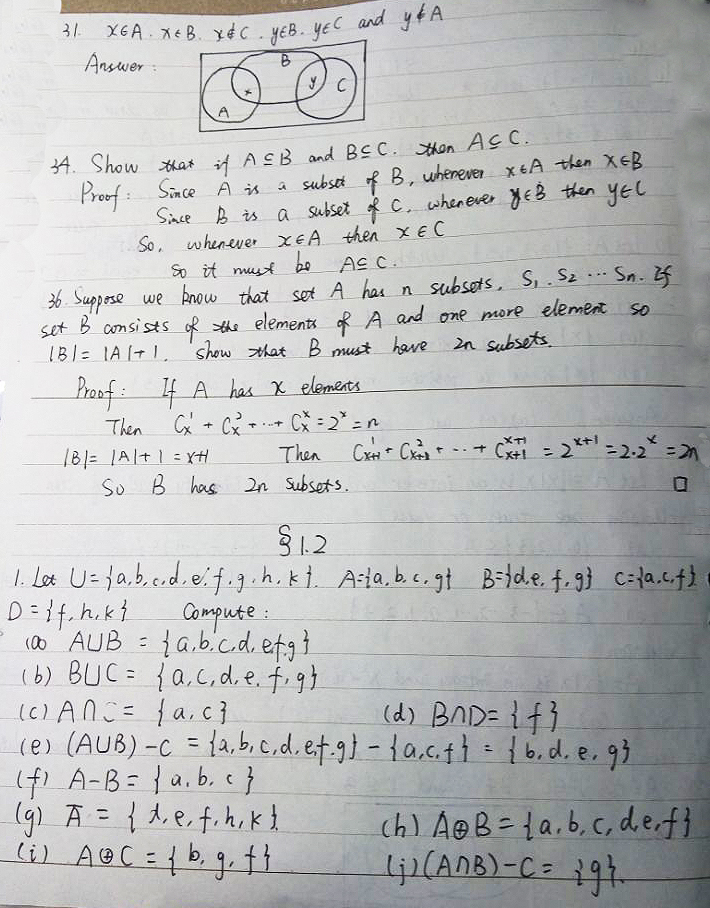 31. x∈A. x∈B. x∉C. y∈B. y∈C and y∉A
Answer:
B
A x y C
34. Show that if A⊆B and B⊆C. then A⊆C.
Proof: Since A is a subset of B, whenever x∈A then x∈B
Since B is a subset of C, whenever y∈B then y∈C
So, whenever x∈A then x∈C
So it must be A⊆C.
36. Suppose we know that set A has n subsets, S₁. S₂ ... Sn. If
set B consists of the elements of A and one more element so
|B|=|A|+1. show that B must have 2n subsets.
Proof: If A has x elements
Then Cₓ¹ + Cₓ² + ... + Cₓˣ = 2ˣ = n
|B|= |A|+1 = x+1 Then Cₓ₊₁¹ + Cₓ₊₁² + ... + Cₓ₊₁ˣ⁺¹ = 2ˣ⁺¹ = 2·2ˣ = 2n
So B has 2n subsets. □
§1.2
1. Let U={a,b,c,d,e,f,g,h,k}. A={a,b,c,g} B={d,e,f,g} C={a,c,f}
D={f,h,k} Compute:
(a) A∪B = {a,b,c,d,e,f,g}
(b) B∪C = {a,c,d,e,f,g}
(c) A∩C = {a,c} (d) B∩D={f}
(e) (A∪B)-C = {a,b,c,d,e,f,g} - {a,c,f} = {b,d,e,g}
(f) A-B = {a,b,c}
(g) A̅ = {d,e,f,h,k} (h) A⊕B={a,b,c,d,e,f}
(i) A⊕C = {b,g,f} (j) (A∩B)-C= {g}.